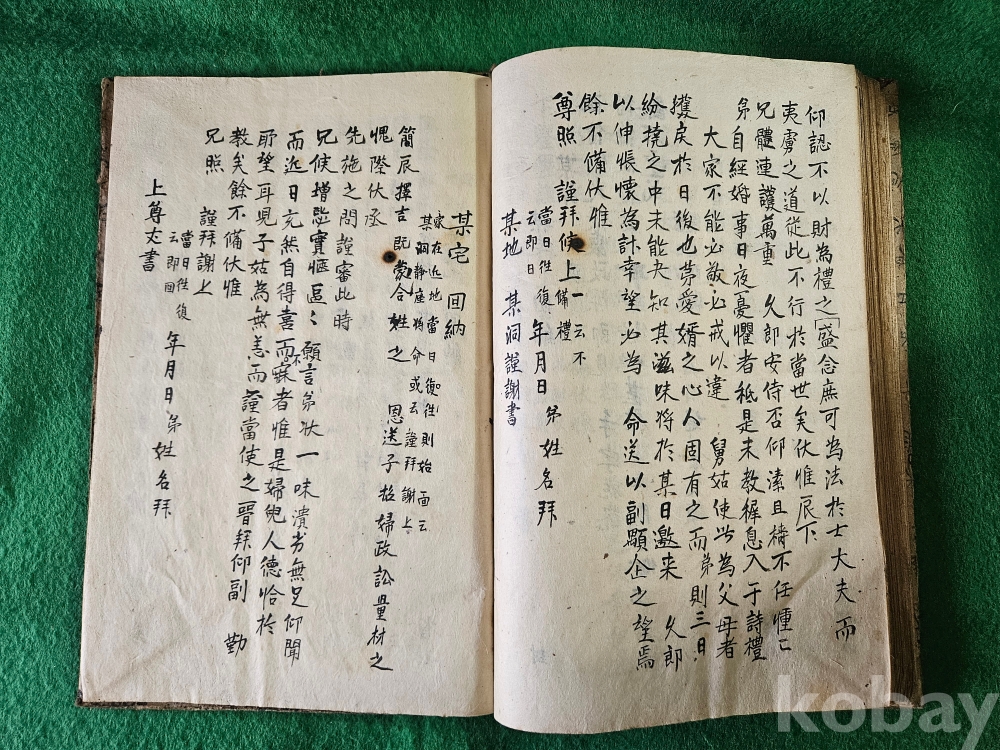 仰認不以財為禮之盛念庶可為法於士大夫而
夷虜之道從此不行於當世矣伏惟辰下
兄體連護萬重 久郎安侍否仰溸且禱不任憧〻
弟自經婚事日夜憂懼者秪是未教穉息入于詩禮
大家不能必敬必戒以違 舅姑使此為父母者
獲戾於日後也第愛婿之心人固有之而弟則三日
紛撓之中未能夬知其滋味將於某日邀来 久郎
以伸悵懷為計幸望必為 命送以副顒企之望焉
餘不備伏惟
尊照謹拜使上一云不備禮
當日徃復云即日 年月日弟姓名拜
某地 某洞謹謝書
某宅 回納
家在近地當日復徃則始面云
某洞靜座將命或云謹拜謝上
簡辰擇吉旣蒙合姓之 恩送子拈婦政訟量材之
愧際伏承
先施之問謹審此時
兄候增毖實愜區〻願言弟状一味潰劣無足仰聞
而近日充然自得喜而不寐者惟是婦皃人德恰於
所望耳児子姑為無恙而謹當使之晋拜仰副 勤
教矣餘不備伏惟
兄照 謹拜謝上
當日徃復云即回 年月日弟姓名拜
上尊丈書
kobay